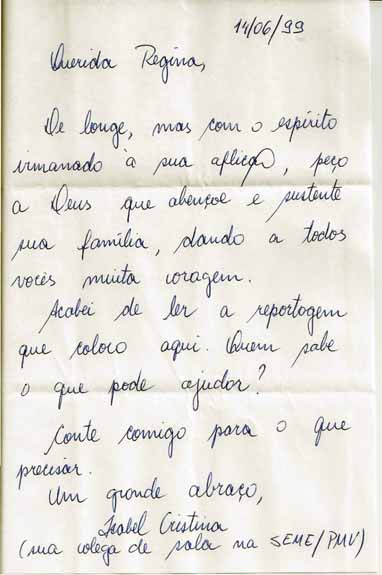 14/06/99
Querida Regina,
De longe, mas com o espírito
irmanado à sua aflição, peço
a Deus que abençoe e sustente
sua família, dando a todos
vocês muita coragem.
Acabei de ler a reportagem
que coloco aqui. Quem sabe
o que pode ajudar?
Conte comigo para o que
precisar.
Um grande abraço,
Isabel Cristina
(sua colega de sala na SEME/PMV)